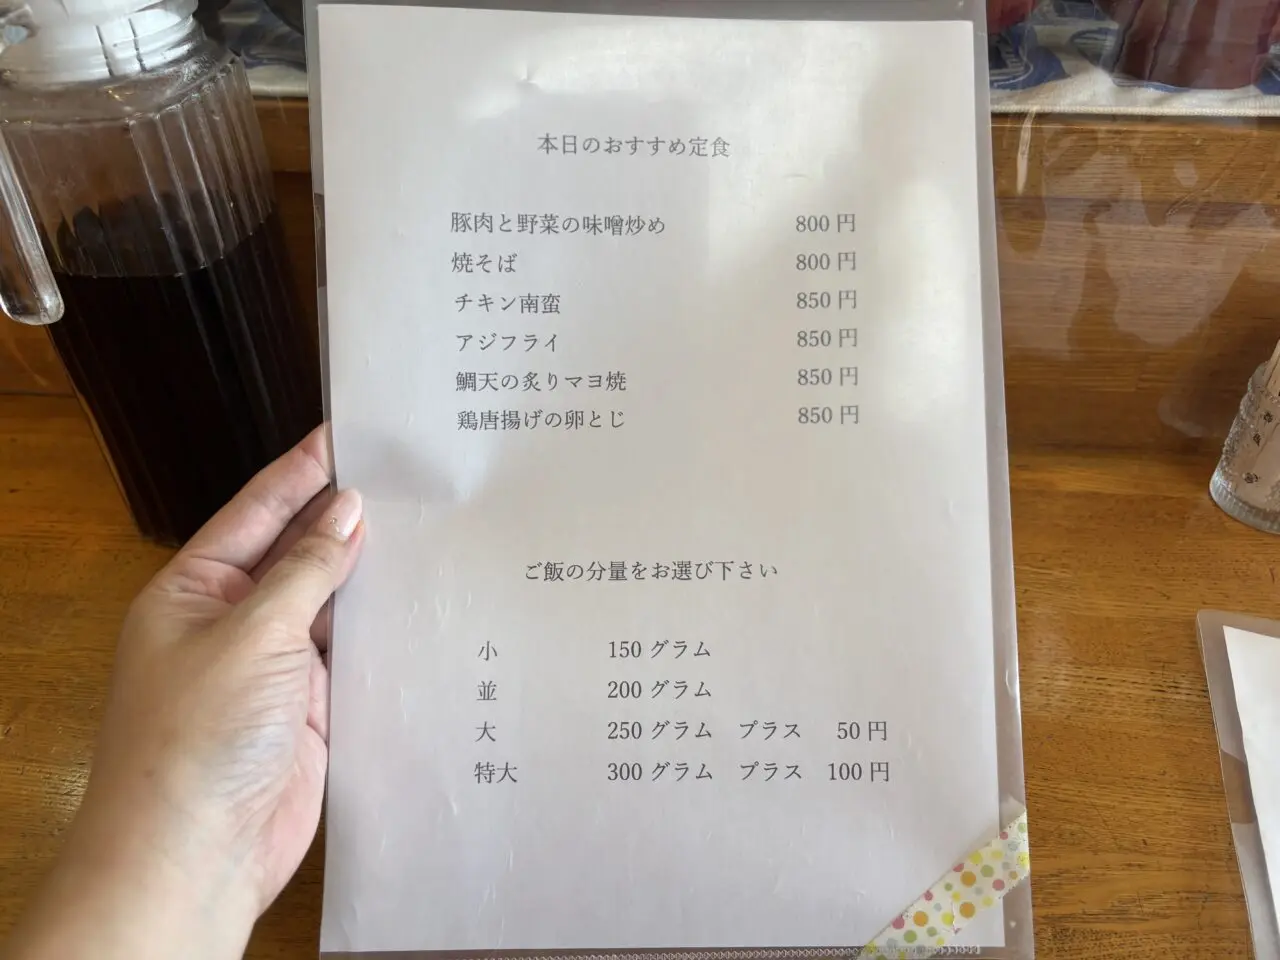 本日のおすすめ定食
豚肉と野菜の味噌炒め 800 円
焼そば 800 円
チキン南蛮 850 円
アジフライ 850 円
鯛天の炙りマヨ焼 850 円
鶏唐揚げの卵とじ 850 円
ご飯の分量をお選び下さい
小 150 グラム
並 200 グラム
大 250 グラム プラス 50 円
特大 300 グラム プラス 100 円